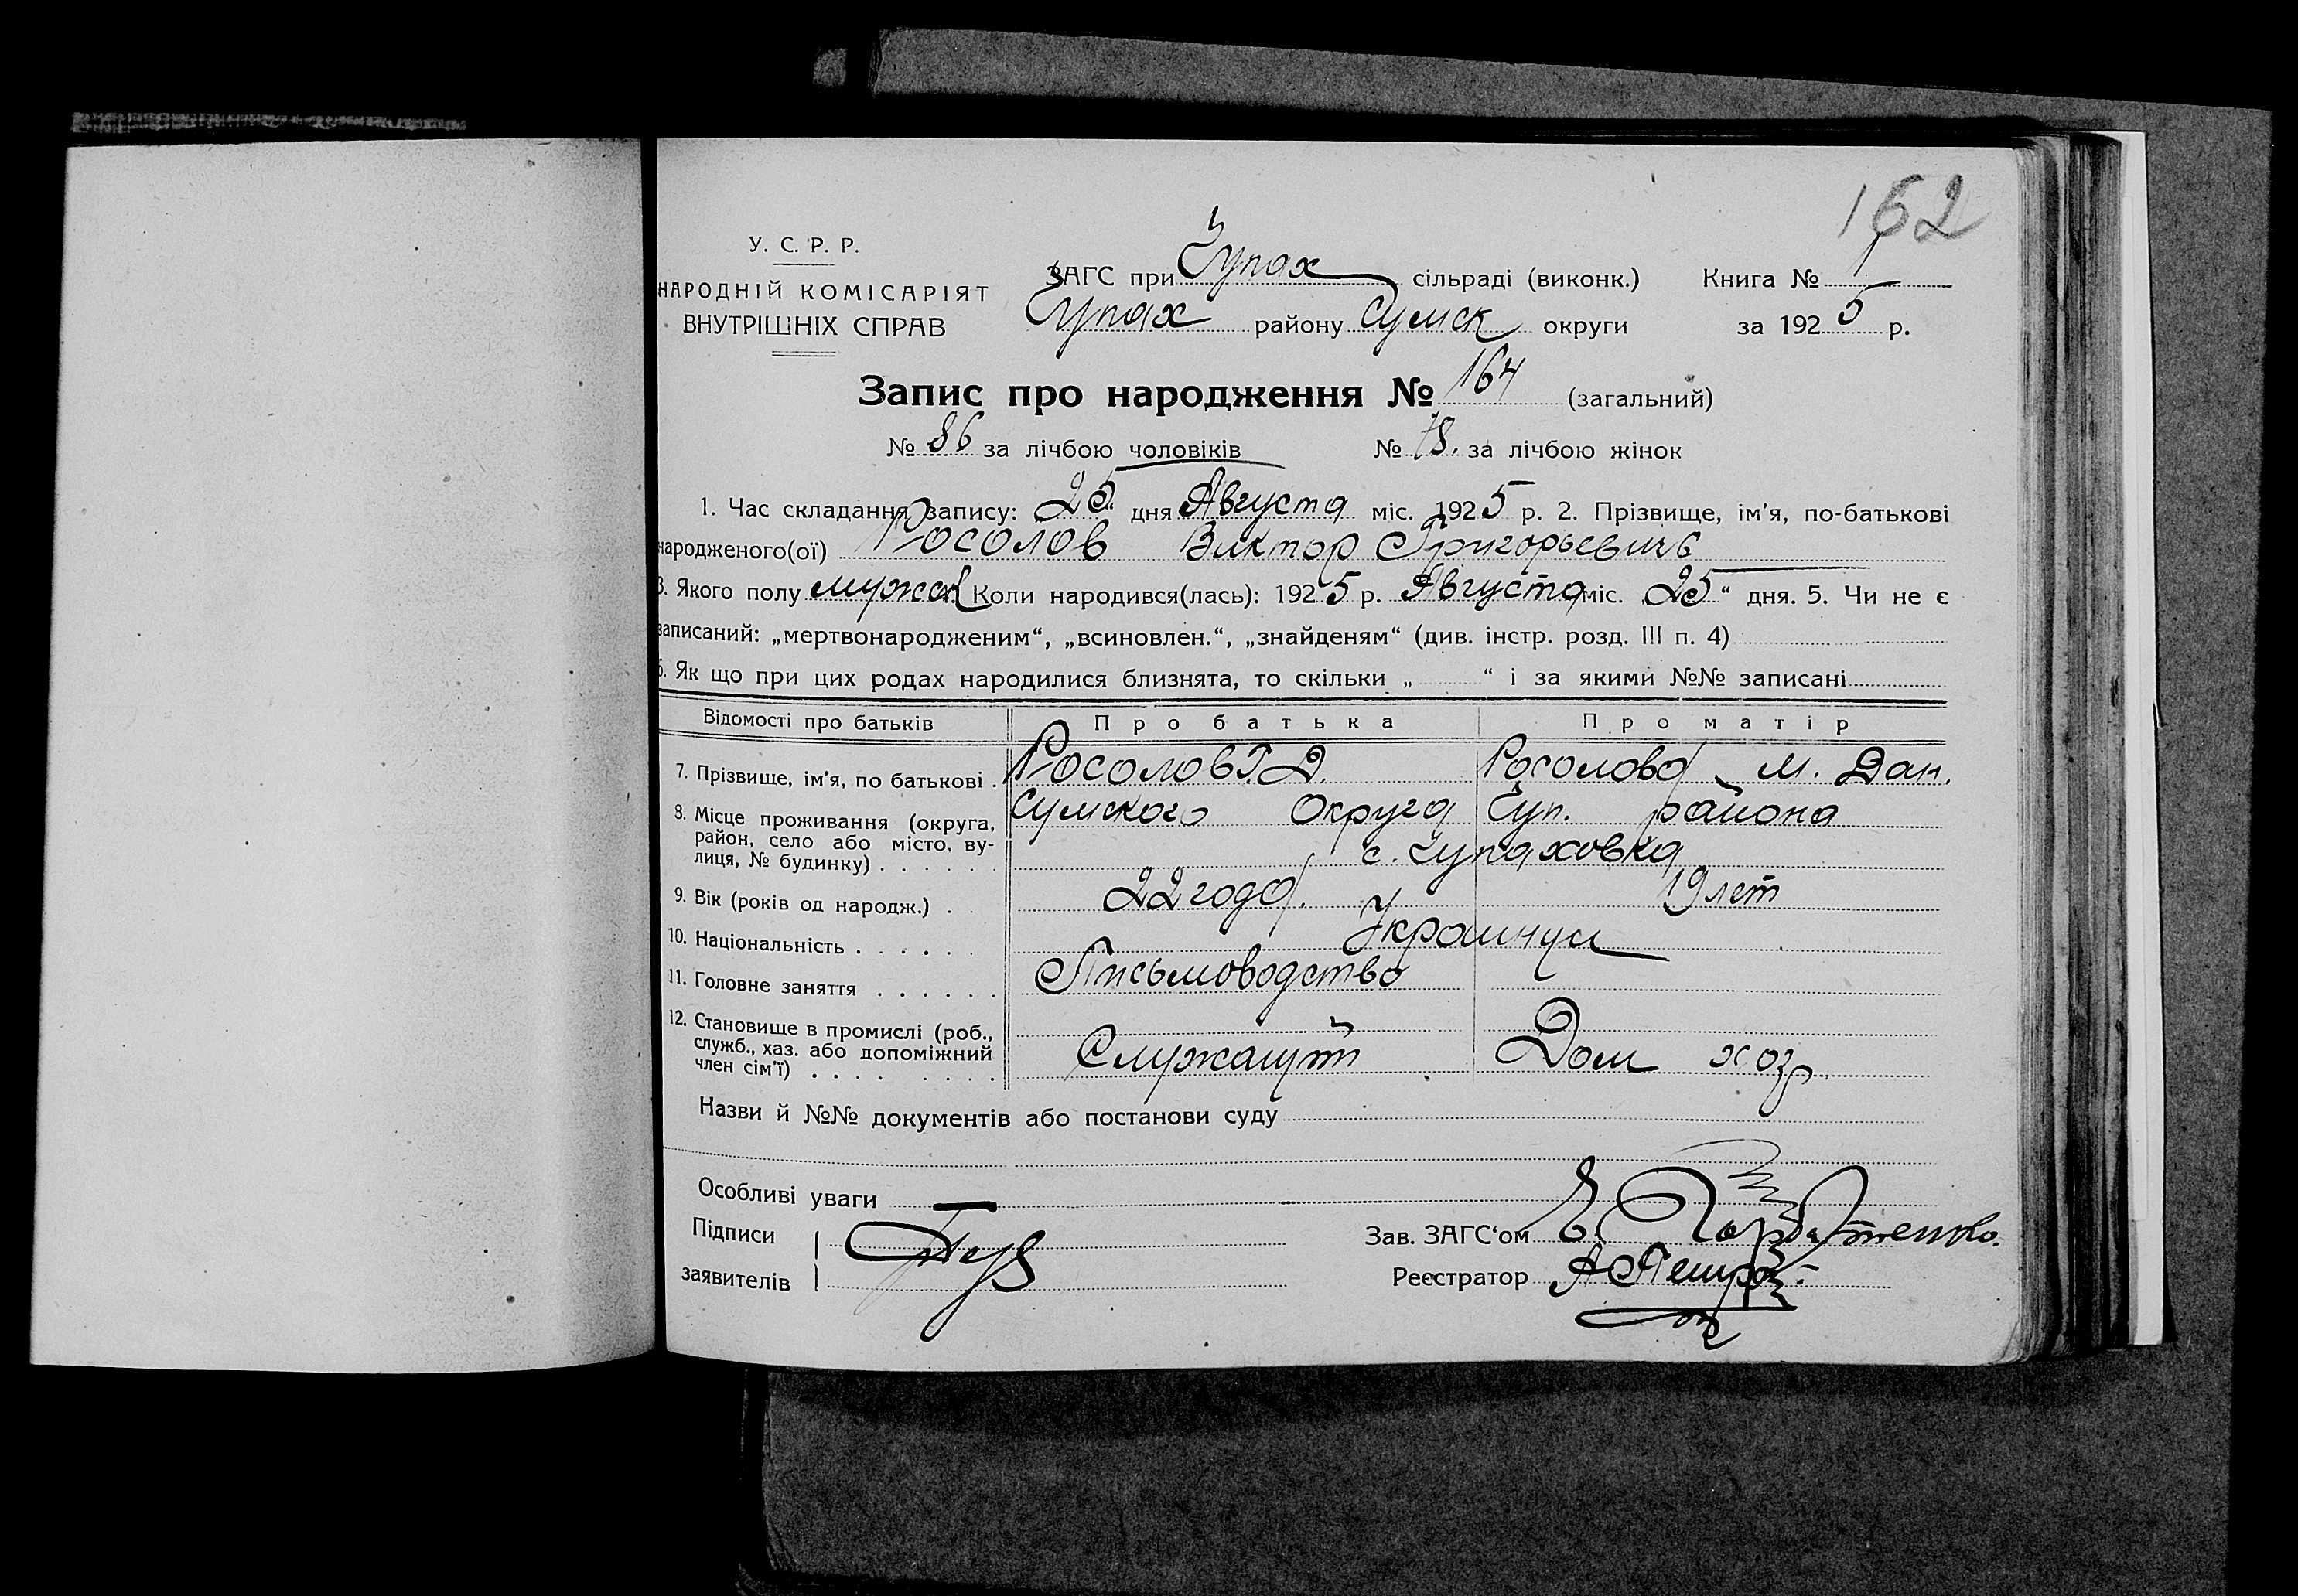 162
У. С. Р. Р.
НАРОДНІЙ КОМІСАРІЯТ
ВНУТРІШНІХ СПРАВ
ЗАГС при Чупах сільраді (виконк.) Книга №
Чупах району Сумск округи за 1925 р.
Запис про народження № 164 (загальний)
№ 86 за лічбою чоловіків № 78. за лічбою жінок
1. Час складання запису: „25“ дня Августа міс. 1925 р. 2. Прізвище, ім'я, по-батькові
народженого(ої) Росолов Виктор Григорьевичъ
3. Якого полу мужск 4. Коли народився(лась): 1925 р. Августа міс. „25“ дня. 5. Чи не є
записаний: „мертвонародженим“, „всиновлен.“, „знайденям“ (див. інстр. розд. III п. 4)
6. Як що при цих родах народилися близнята, то скільки „ “ і за якими №№ записані
Відомості про батьків Про батька Про матір
7. Прізвище, ім'я, по батькові . Росолов Г. Д. Росолова М. Дан.
8. Місце проживання (округа, район, село або місто, вулиця, № будинку) . . . . . . Сумского Округа Чуп. района
с. Чупаховка
9. Вік (років од народж.) . 22 года. 19 лет
10. Національність . . . . . . Украинцы
11. Головне заняття . . . . . . Письмоводство
12. Становище в промислі (роб., служб., хаз. або допоміжний член сім'ї) . . . . . . . . . Служащий Дом хоз.
Назви й №№ документів або постанови суду
Особливі уваги
Підписи
заявителів
Зав. ЗАГС'ом
Реєстратор